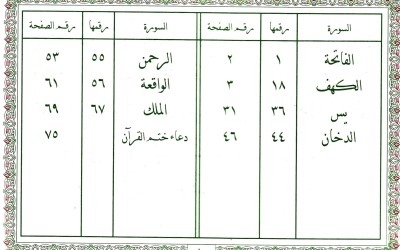 السورة رقمها رقم الصفحة السورة رقمها رقم الصفحة
الفاتحة ١ ٢ الرحمن ٥٥ ٥٣
الكهف ١٨ ٣ الواقعة ٥٦ ٦١
يس ٣٦ ٣١ الملك ٦٧ ٦٩
الدخان ٤٤ ٤٦ دعاء ختم القرآن ٧٥